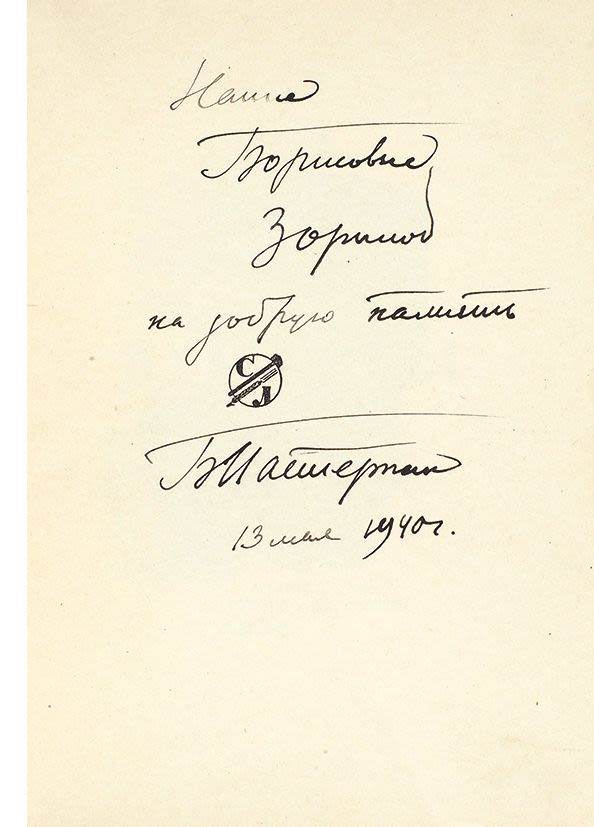 Нанне
Борисовне
Зориной
на добрую память
СЛ
Б Пастернак
13 мая 1940 г.